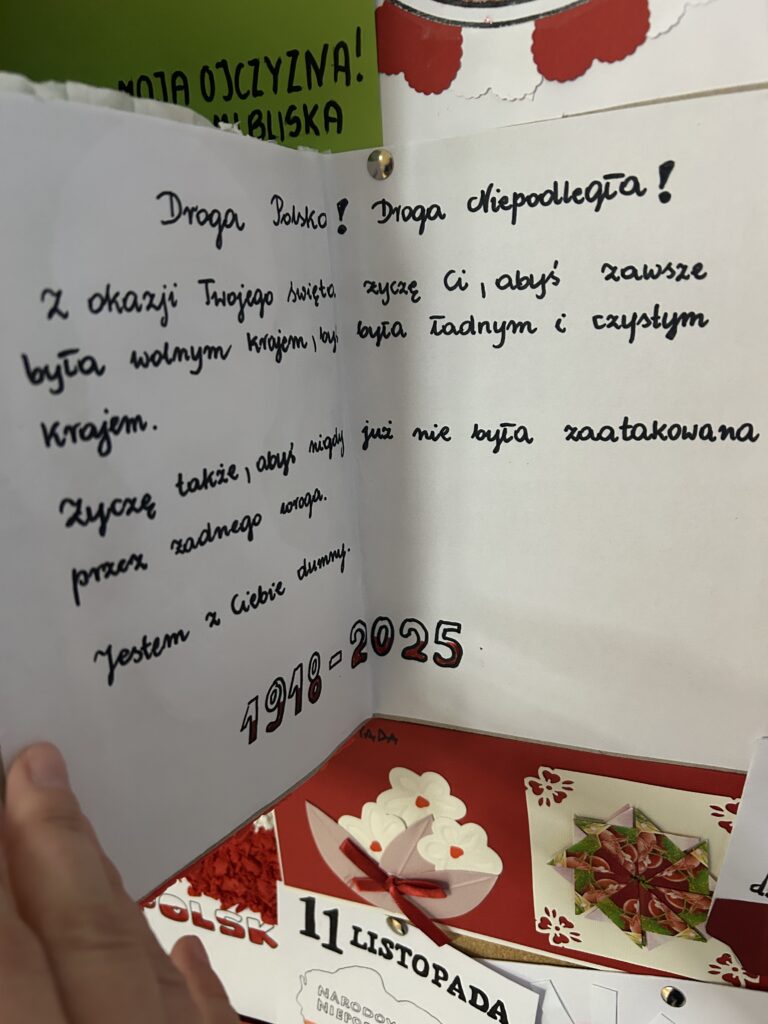 MOJA OJCZYZNA!
BLISKA
Droga Polsko! Droga Niepodległa!
Z okazji Twojego święta życzę Ci, abyś zawsze
była wolnym krajem, byś była ładnym i czystym
krajem.
Życzę także, abyś nigdy już nie była zaatakowana
przez żadnego wroga.
Jestem z Ciebie dumny.
1918-2025
POLSK
11 LISTOPADA
NARODOW
NIEPO